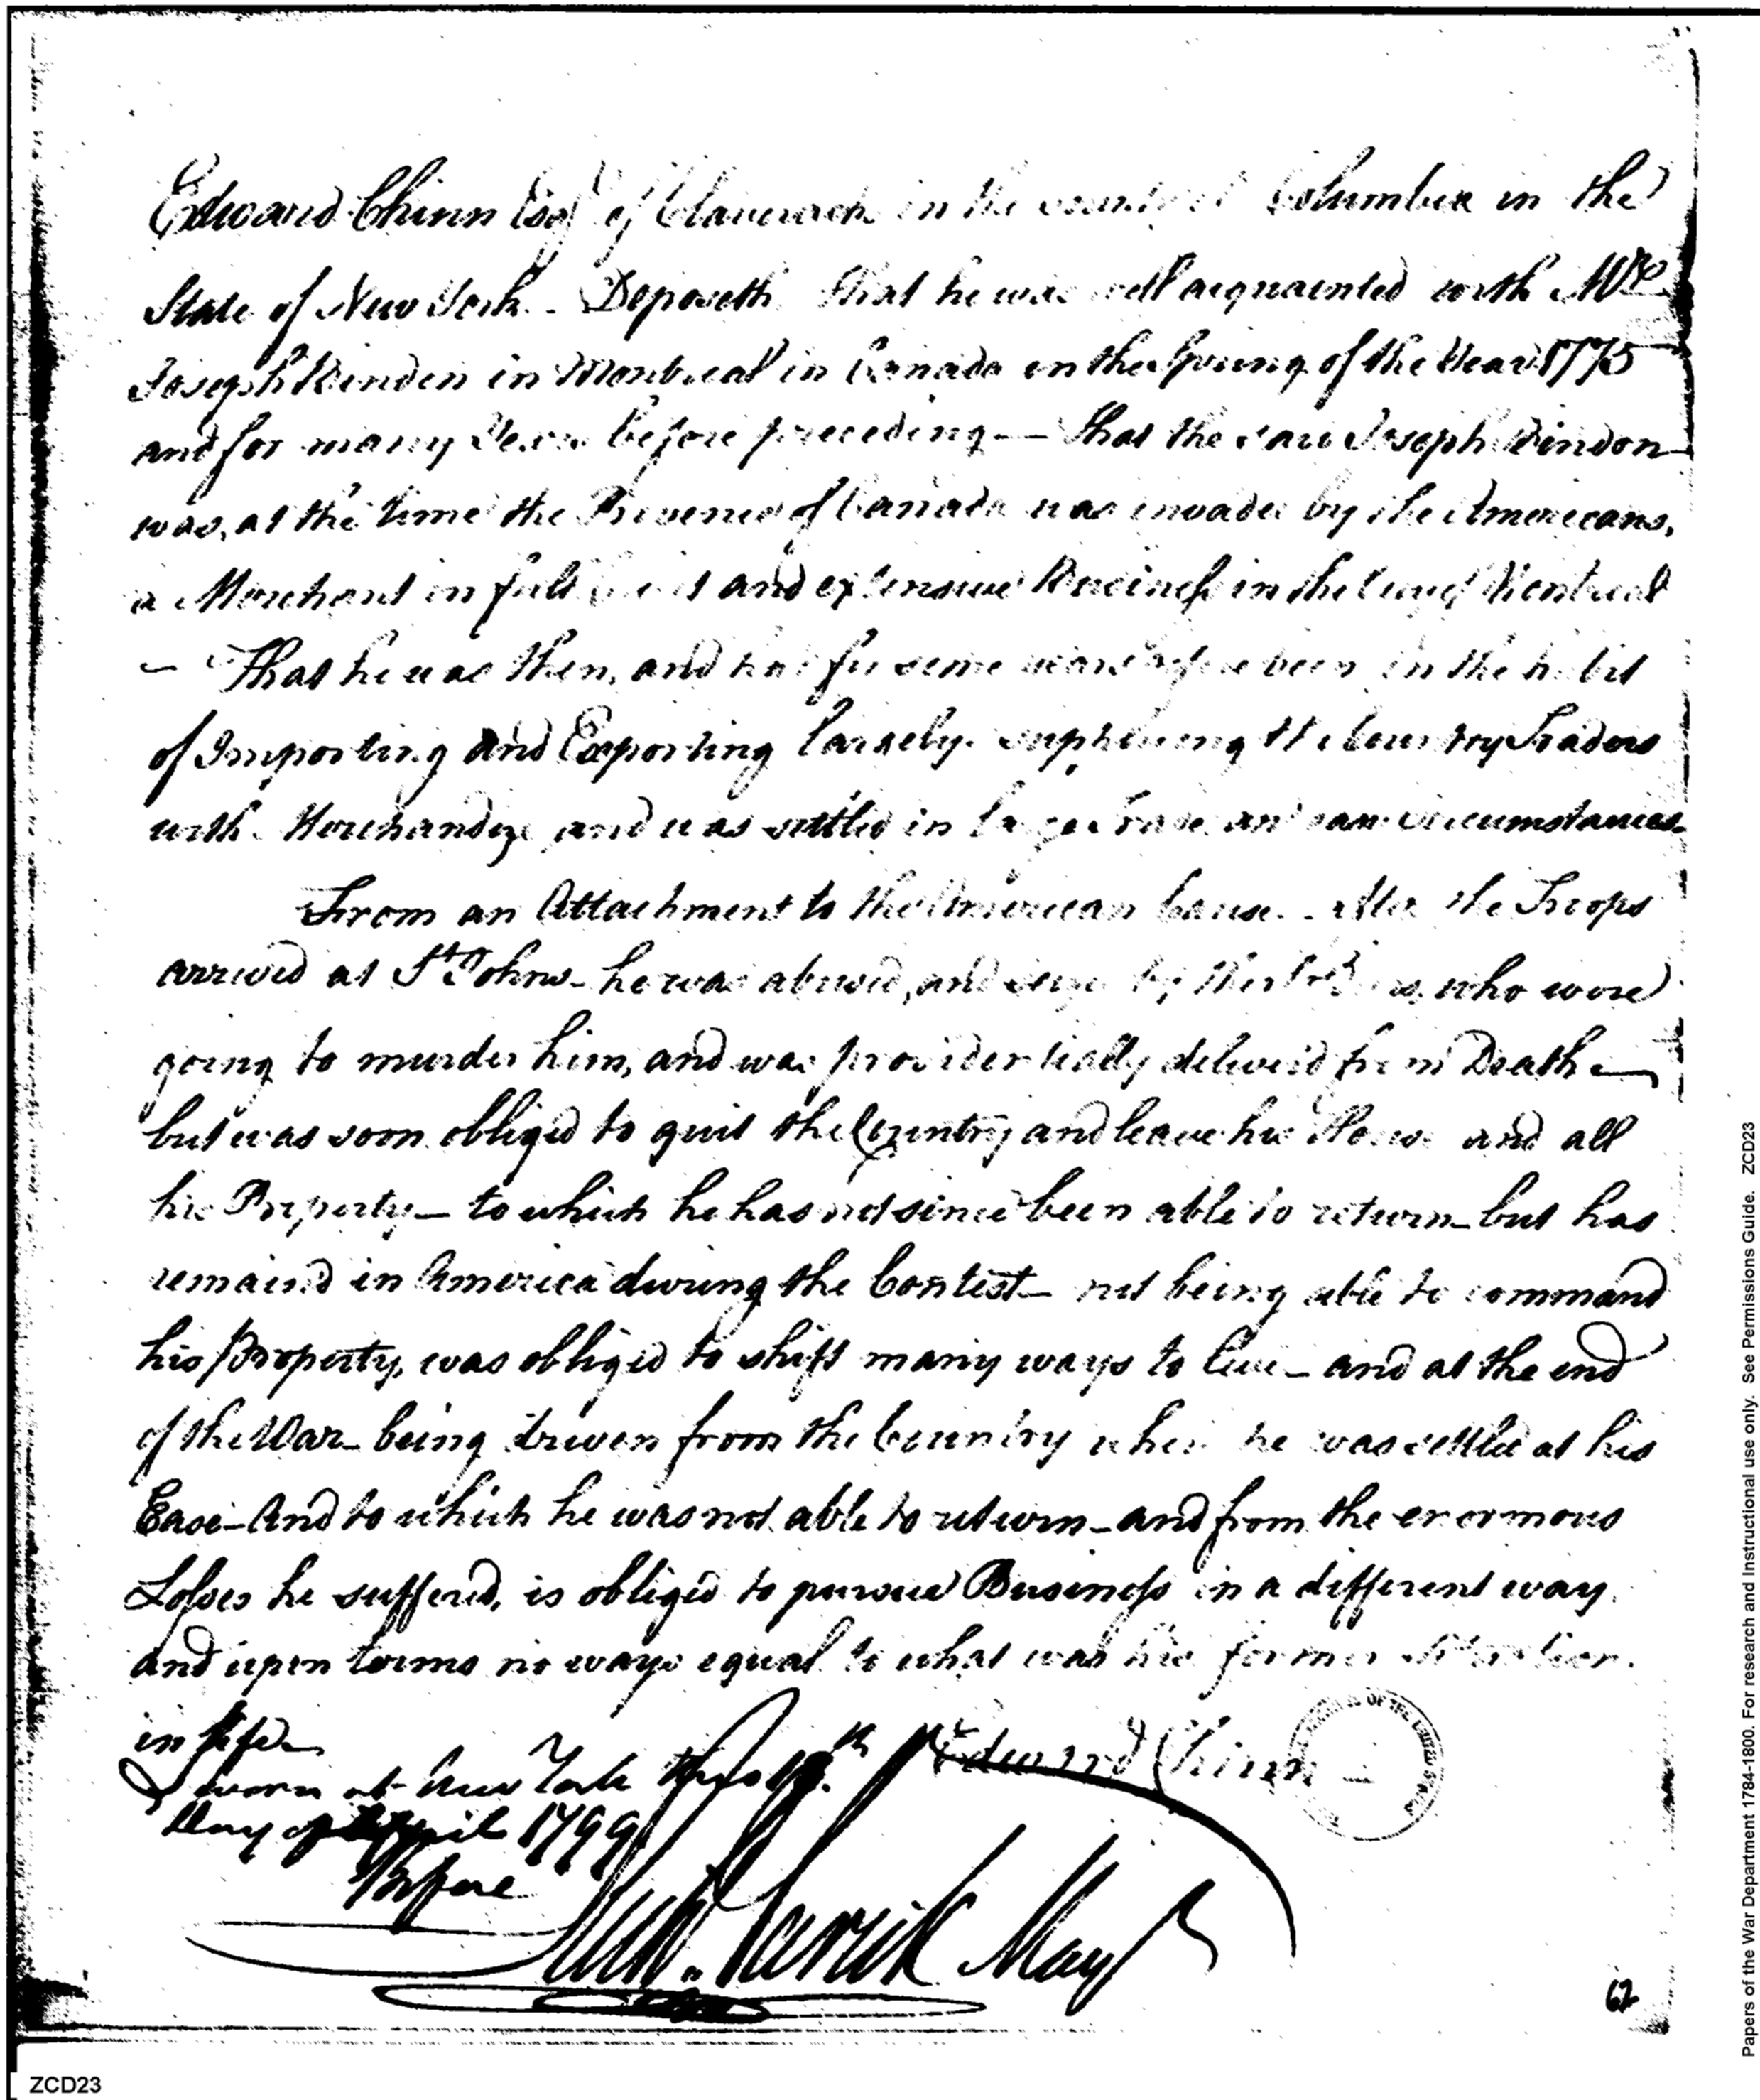 Edward Chinn Esqr of Claverack in the county of Columbia in the
State of New York - Deposeth that he was well acquainted with Mr
Joseph Bindon in Montreal in Canada in the Spring of the Year 1775
and for many Years before preceding -- That the said Joseph Bindon
was, at the time the Province of Canada was invaded by the Americans,
a Merchant in full and extensive Business in the City of Montreal
- That he was then, and had for some years before been in the habit
of Importing and Exporting largely. supplying the Country Traders
with Merchandize and was settled in large Trade and circumstances
From an Attachment to the American Cause - after the Troops
arrived at St Johns - he was abused, and by their who were
going to murder him, and was providentially deliver'd from Death -
but was soon obliged to quit the Country and leave his House and all
his Property - to which he has not since been able to return - but has
remain'd in America during the Contest - not being able to command
his Property, was obliged to shift many ways to live - and at the end
of the War - being driven from the Country where he was settled at his
Ease - And to which he was not able to return - and from the enormous
Losses he suffered, is obliged to pursue Business in a different way
and upon terms no ways equal to what was his former situation
in life
Sworn at New York this th
Day of April 1799
Before
Edward Chinn
Richd. Varick Mayr
62
ZCD23
Papers of the War Department 1784-1800. For research and Instructional use only. See Permissions Guide. ZCD23